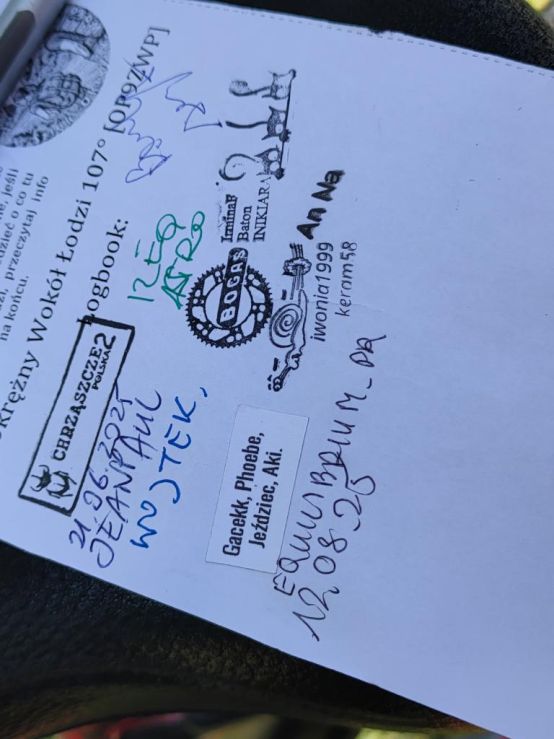 jeśli
dzieć o co tu
przeczytaj info
na końcu.
krężny Wokół Łodzi 107° [OP9ZWP]
ogbook:
CHRZĄSZCZE2
POLSKA
21.06.2025
JEANPAUL
WOJTEK,
ASTRO
BOGAS
IrminaF
Baton
INIKJARA
An Na
iwonia1999
keram58
Gacekk, Phoebe,
Jeździec, Aki.
EQUILIBRIUM_PR
12.08.25